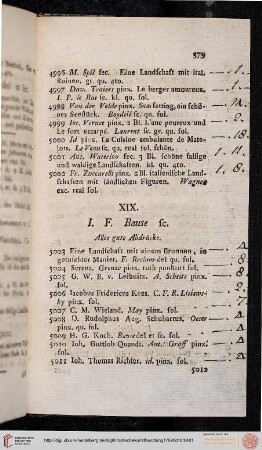 379
4996 M. Sell fec. Eine Landschaft mit ital.
Ruinen. gr. qu. 4to.
4997 Dav. Teniers pinx. Le berger amoureux.
I. P. le Bas sc. kl. qu. fol.
4998 Van der Velde pinx. Sun setting, ein schö-
nes Seestück. Boydell sc. qu. fol.
4999 Ios. Vernet pinx. 2 Bl. L'anc peureux und
Le fort escarpé. Laurent sc. gr. qu. fol.
5000 Id pinx. La Cuisine ambulante de Mate-
lots. Le Veau sc. qu. real fol. schön.
5001 Ant. Waterloo fec. 3 Bl. schöne felsige
und waldige Landschaften. kl. qu. 4to.
5002 Fr. Zuccarelli pinx. 2 Bl. italienische Land-
schaften mit ländlichen Figuren. Wagner
exc. real fol.
XIX.
I. F. Bause sc.
Alles gute Abdrücke.
5003 Eine Landschaft mit einem Brunnen, in
getuschter Manier. F. Rechberger del qu. fol.
5004 Serena. Greuze pinx. roth punktirt fol.
5005 G. W. B. v. Leibnitz. A. Scheits pinx.
fol.
5006 Iacobus Fridericus Kees. C. F. R. Lisiews-
ky pinx. fol.
5007 C. M. Wieland. May pinx. fol.
5008 D. Rudolphus Aug. Schubartus. Oeser
pinx. qu. fol.
5009 H. G. Koch. Bause del et sc. fol.
5010 Ioh. Gottlob Quandt. Ant. Graff pinx.
fol.
5011 Ioh. Thomas Richter. id. pinx. fol.
5012